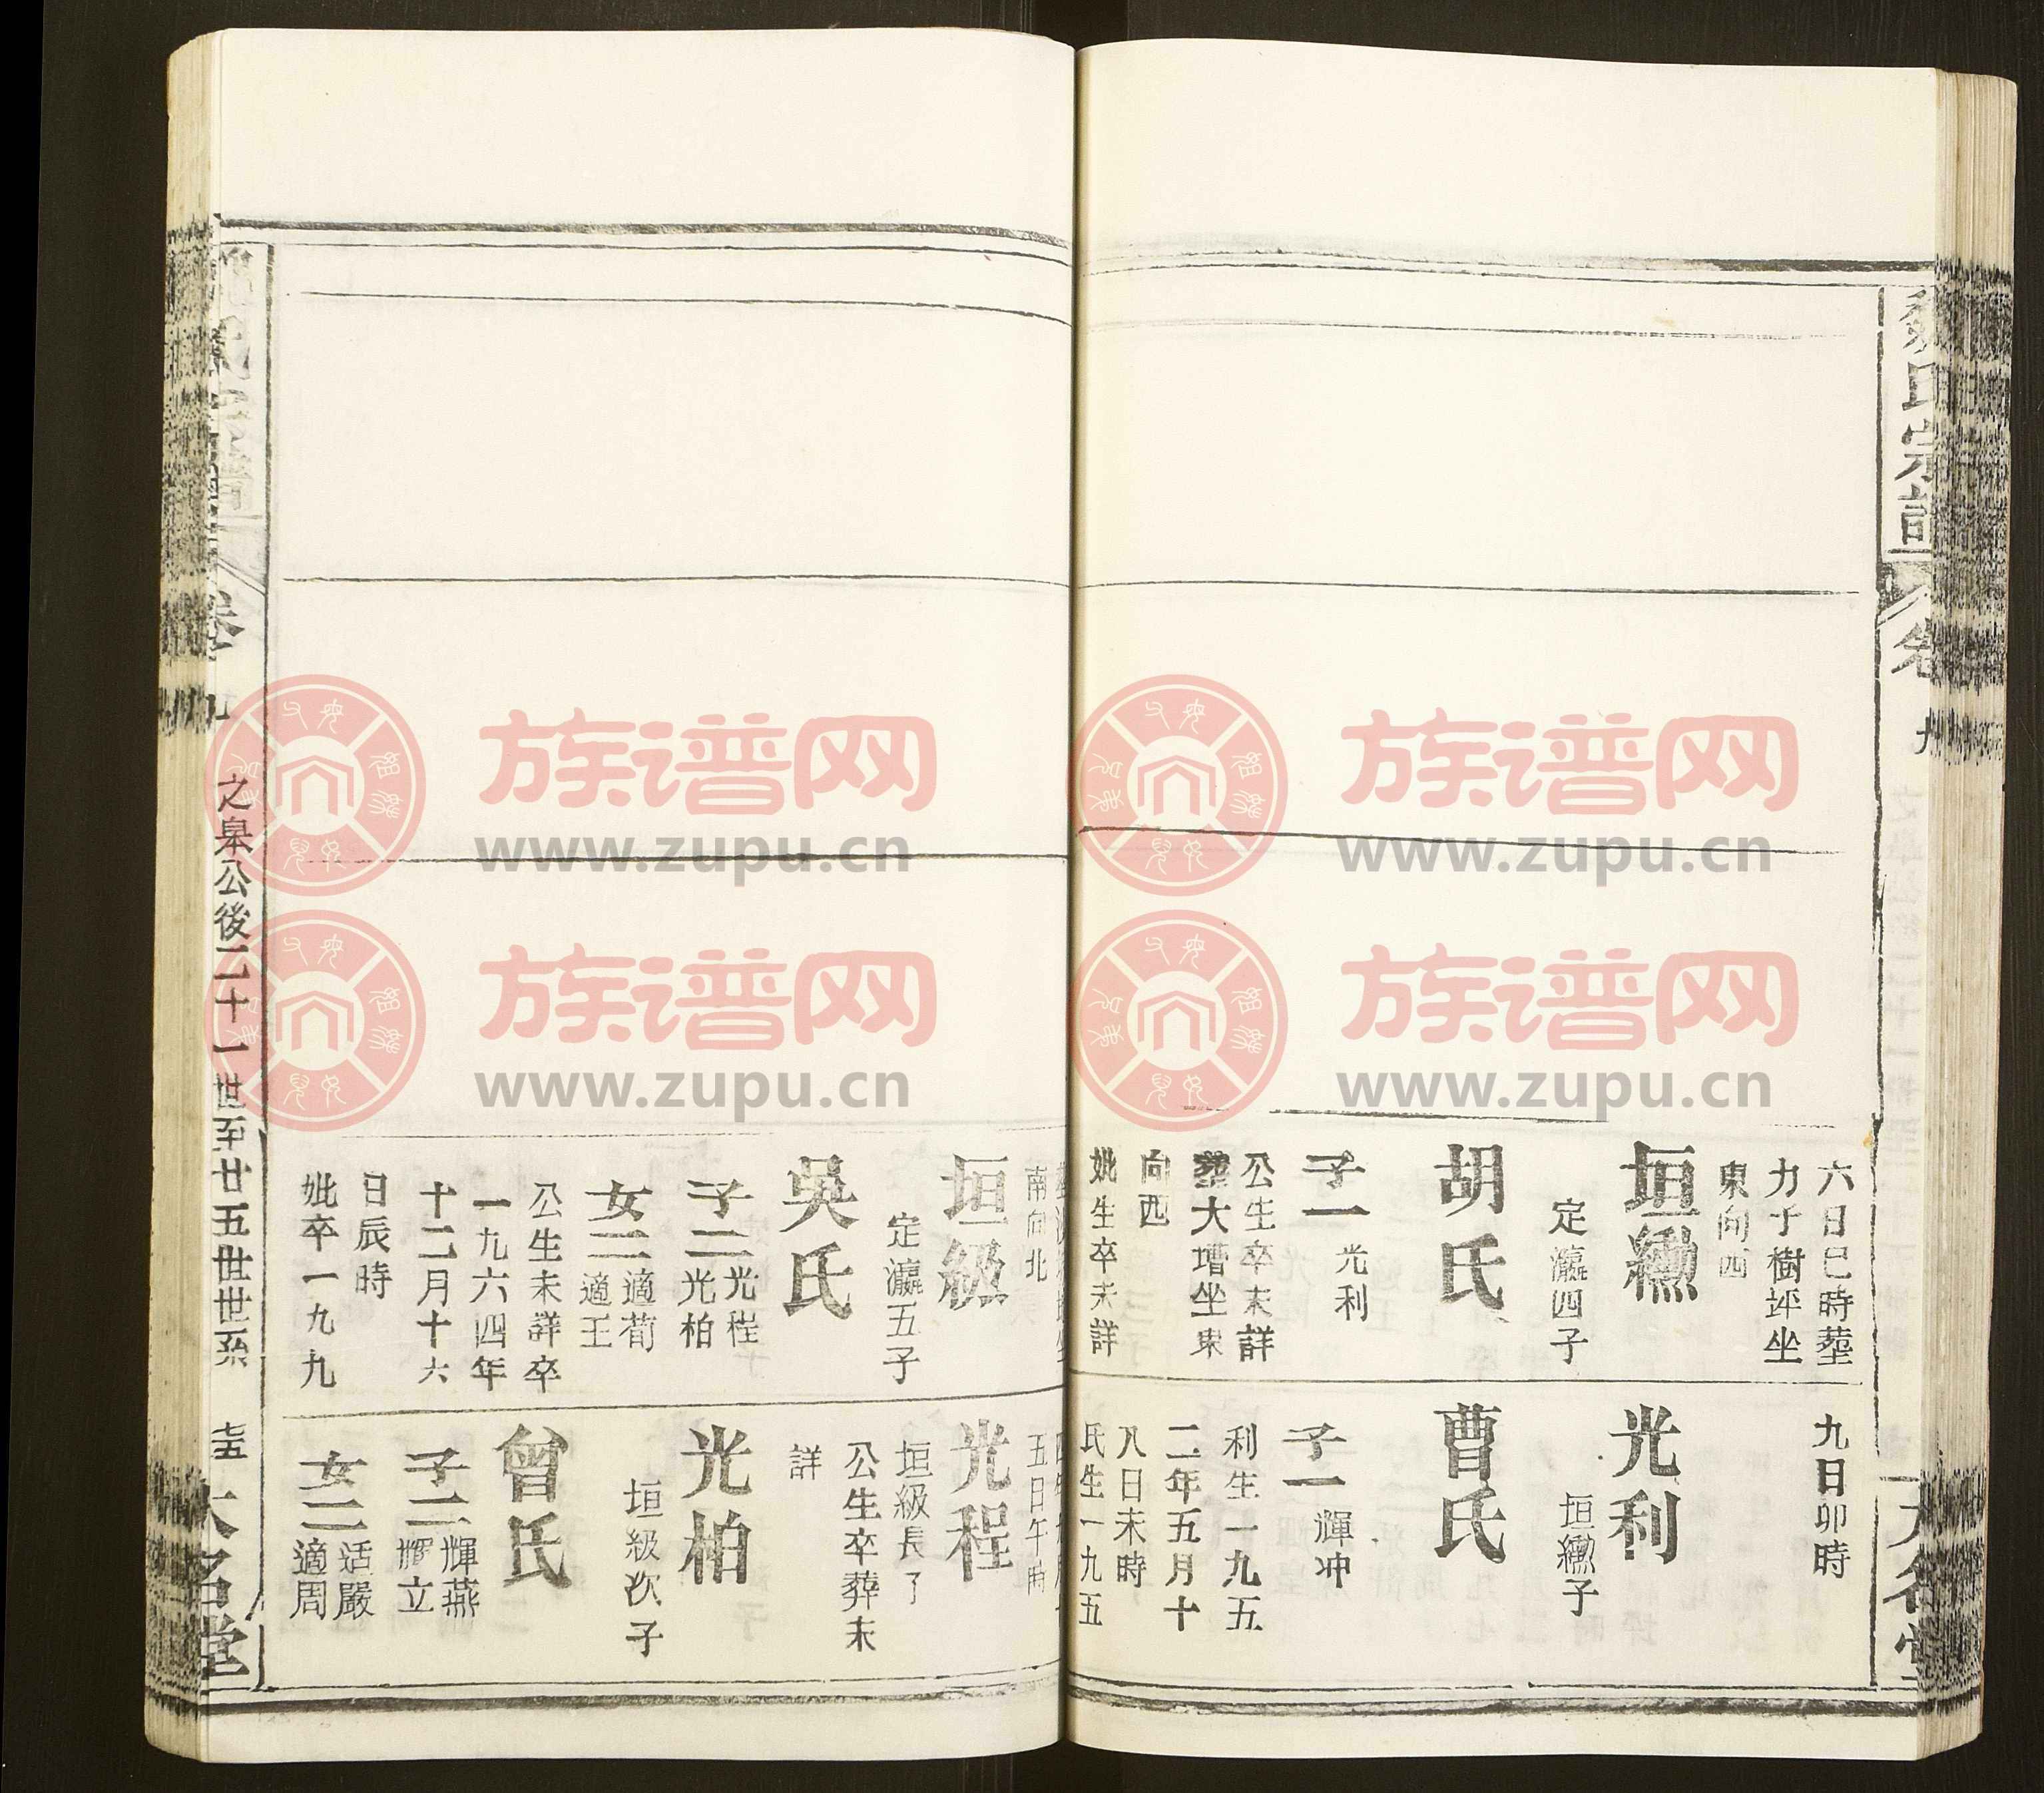 氏宗譜
卷
九
六日巳時塟
力子樹坪坐
東向西
垣
定瀛四子
胡氏
子一
光利
公生卒未詳
塟大壋坐東
向西
妣生卒未詳
九日卯時
光利
垣
子
曹氏
子一
輝冲
利生一九五
二年五月十
八日未時
氏生一九五
南向北
垣級
定瀛五子
吳氏
子二
光程
光柏
女二
適荀
適王
公生未詳卒
一九六四年
十二月十六
日辰時
妣卒一九九
五日午時
光程
垣級長子
公生卒葬未
詳
光柏
垣級次子
曾氏
子二
輝燕
立
女二
适嚴
適周
卷
九
之皋公後二十一世至廿五世世系
七五
大名堂
族谱网
www.zupu.cn
族谱网
www.zupu.cn
族谱网
www.zupu.cn
族谱网
www.zupu.cn